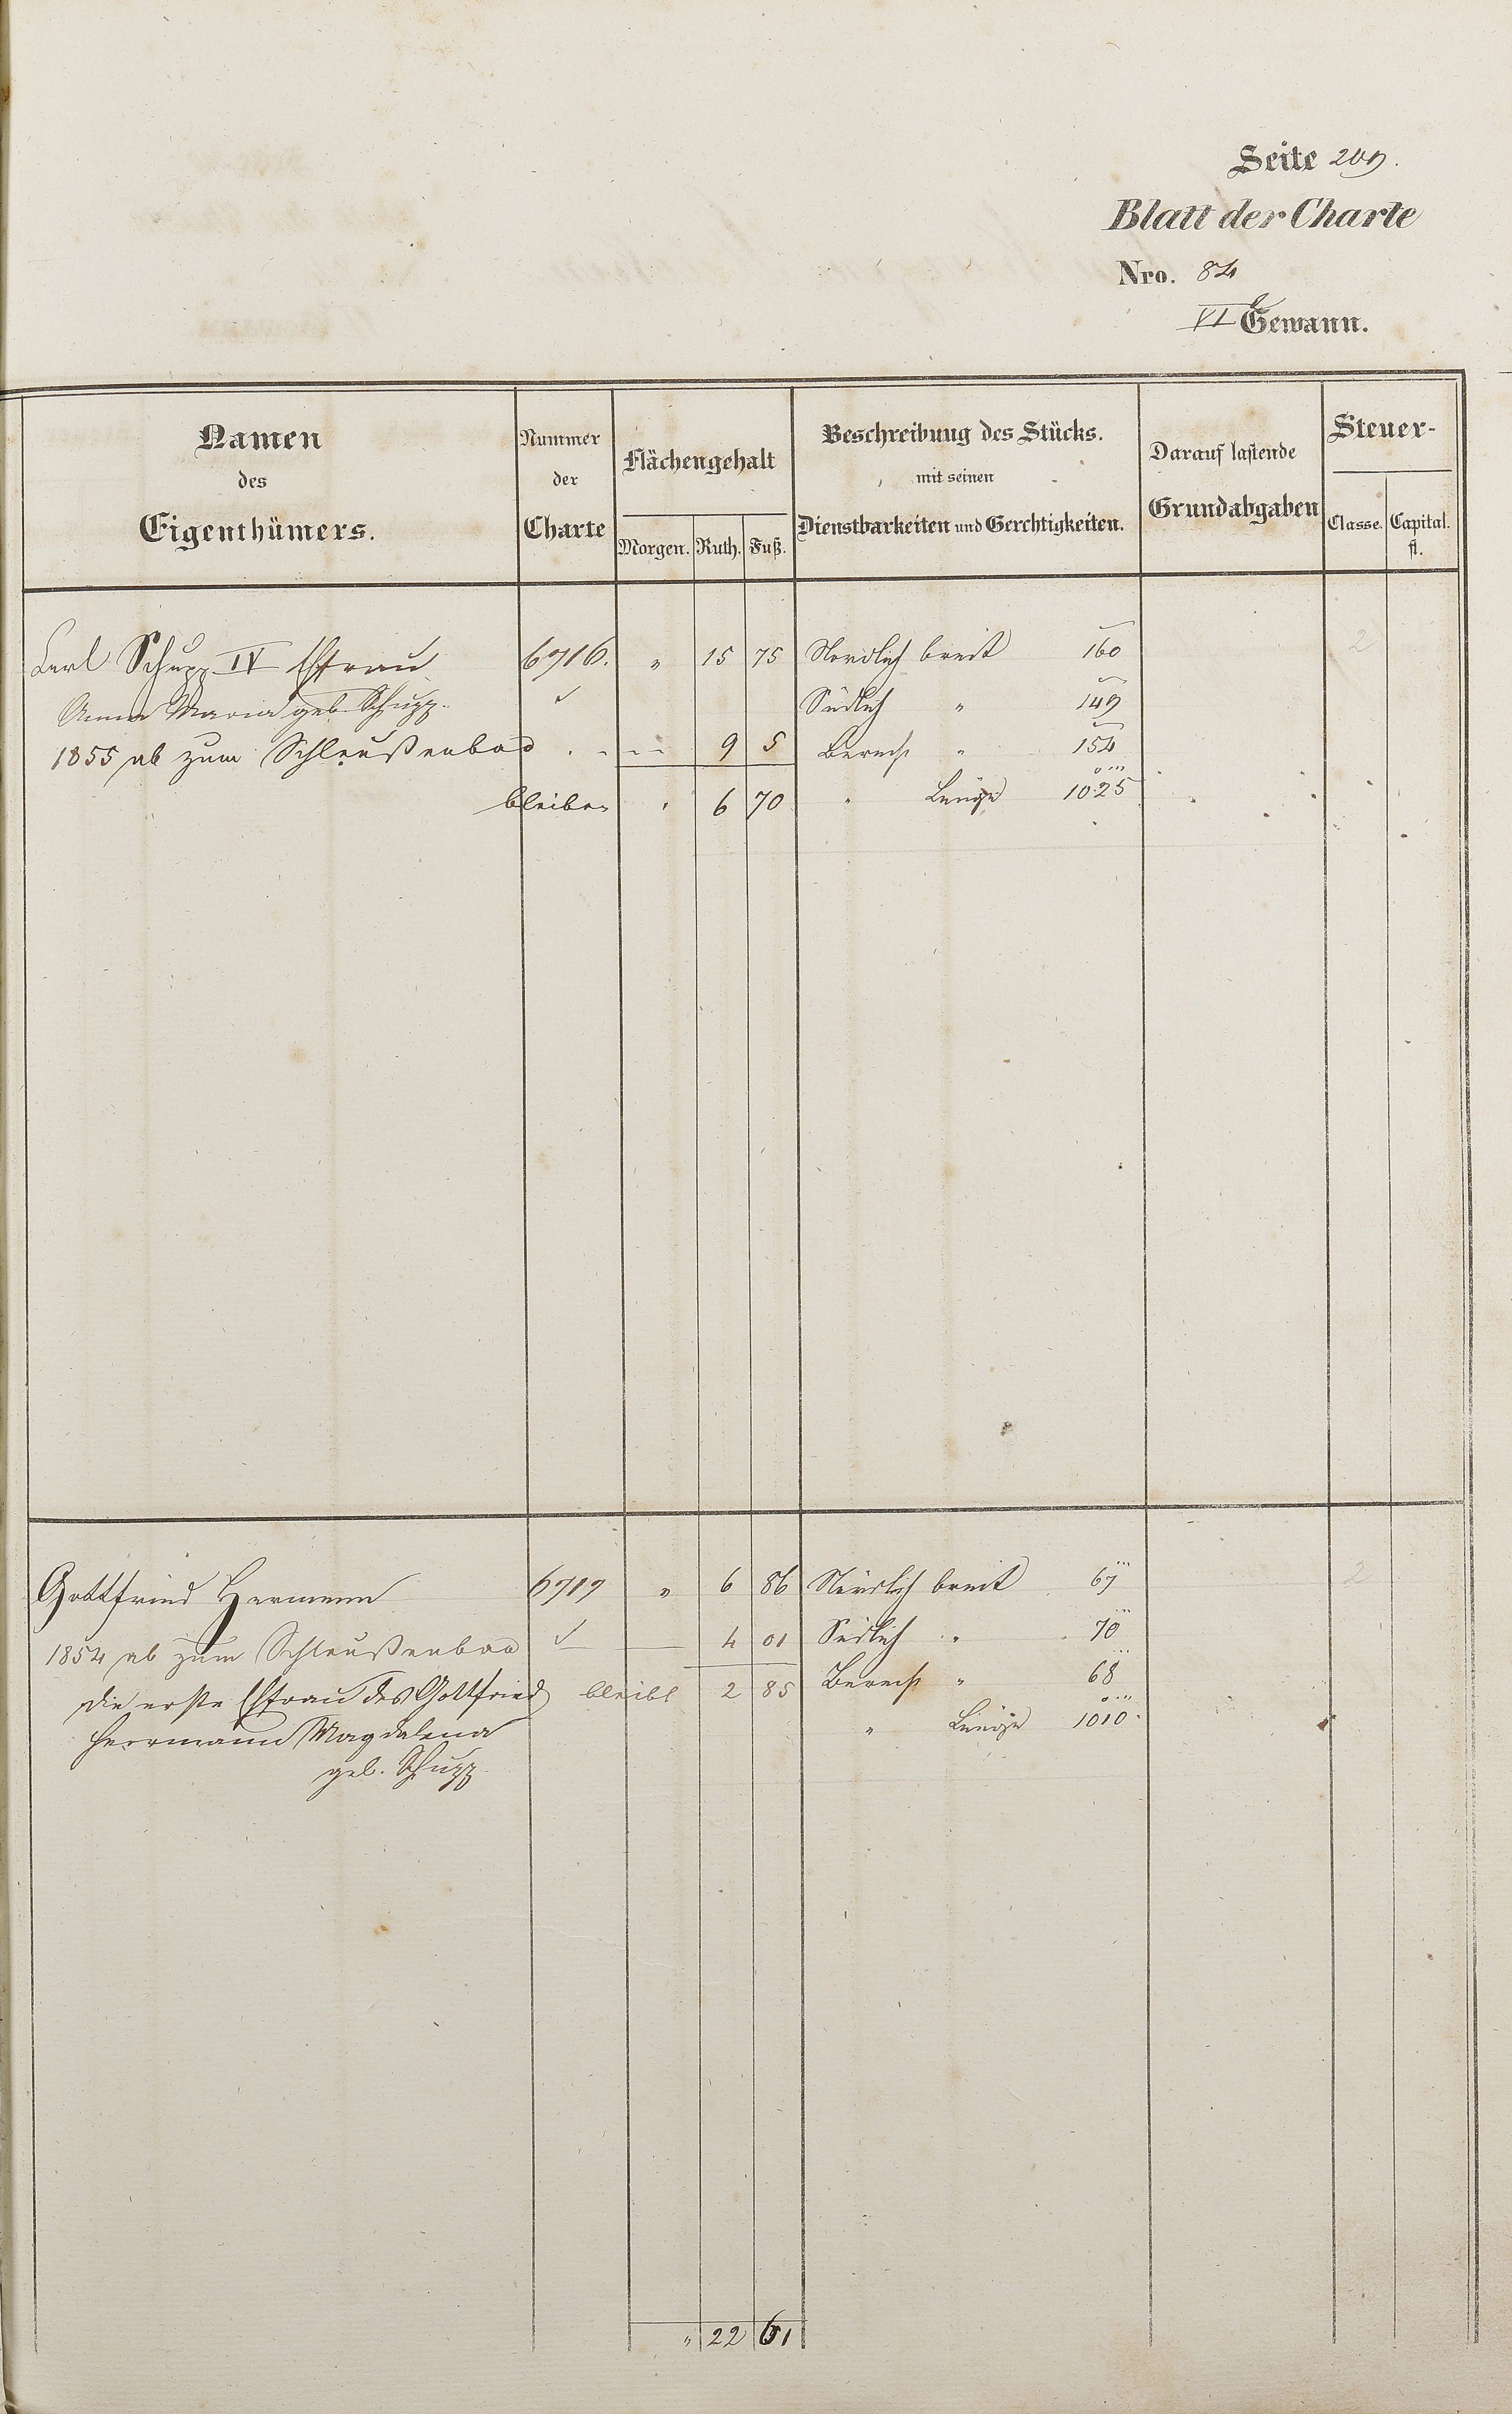 Seite 209.
Blatt der Charte
Nro. 84
VI Gewann.
Namen des Eigenthümers.
Nummer der Charte
Flächengehalt
Morgen. Ruth. Fuß.
Beschreibung des Stücks.
mit seinen
Dienstbarkeiten und Gerchtigkeiten.
Darauf lastende
Grundabgaben
Steuer-
Classe. Capital.
fl.
Carl Schupp IV Ehfrau 6716. " 15 75 Nördlich breit 160 2
Anna Maria geb. Schupp. Südlich " 149
1855 ab zum Schleußenbad 9 5 Berech " 154
bleiben " 6 70 " Länge 1025
Gottfried Hermann 6717 " 6 86 Nördlich breit 67 2
1854 ab zum Schleußenbad 4 01 Südlich " 70
die erste Ehfrau des Gottfried bleibt 2 85 Berech " 68
Herrmann Magdalena " Länge 1010
geb. Schupp
" 22 61